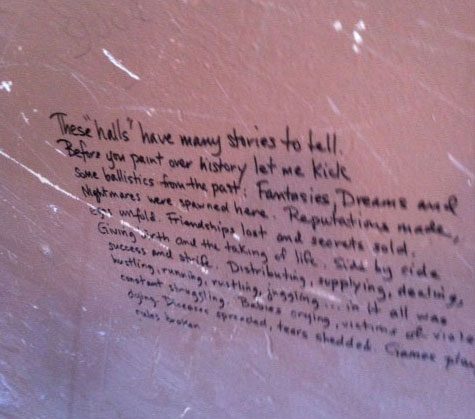 These "halls" have many stories to tell.
Before you paint over history let me kick
some ballistics from the past. Fantasies, Dreams and
Nightmares were spawned here. Reputations made,
unfold. Friendships lost and secrets sold.
Giving birth and the taking of life. Side by side
success and strife. Distributing, supplying, dealing,
hustling, running, rustling, juggling... in it all was
constant struggling. Babies crying, victims of viole
dying. Diseases spreaded, tears shedded. Games play
rules broken